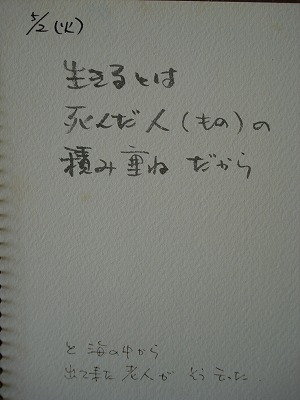 5/2(火)
生きるとは
死んだ人(もの)の
積み重ね だから
と 海の中から
出て来た 老人が そう言った